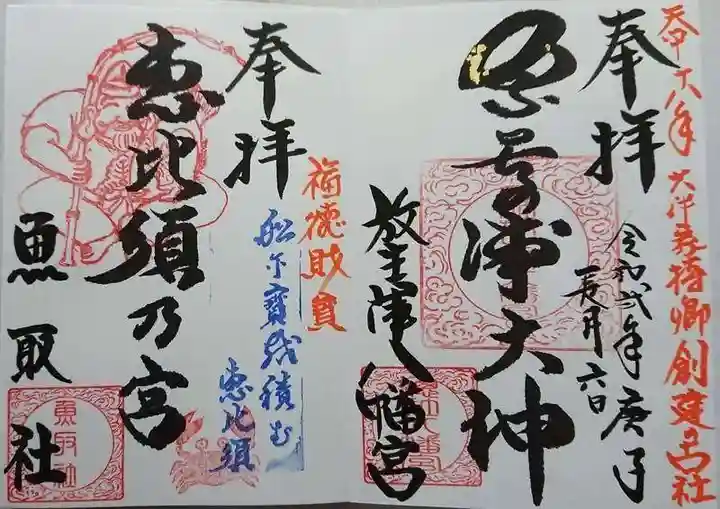 天平十八年 大伴家持卿創建古社
奉拝
令和弐年庚子
長月六日
奈呉之浦大神
放生津八幡宮
福徳財宝
奉拝
船に宝を積む
恵比須
恵比須乃宮
魚取社
魚取社